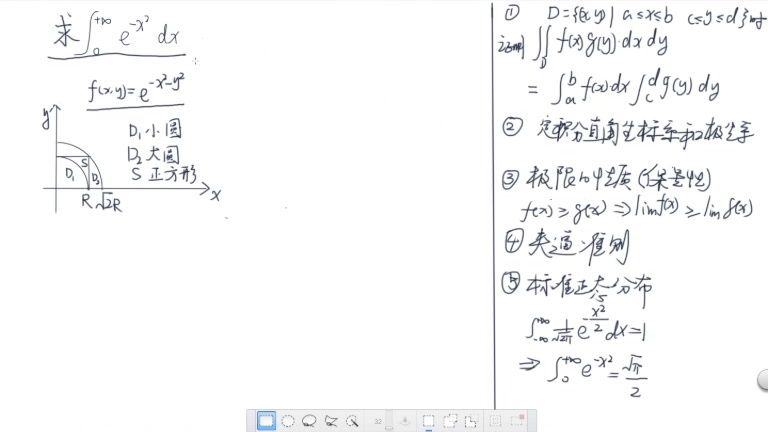 求 ∫₀^{+∞} e^{-x²} dx
f(x,y)=e^{-x²-y²}
y
D₁ 小圆
D₂ 大圆
S 正方形
S
D₁ D₂
R √2R x
① D={(x,y) | a≤x≤b c≤y≤d}时
证明 ∬_D f(x)g(y)·dxdy
= ∫_a^b f(x)dx ∫_c^d g(y)dy
② 定积分直角坐标系和极坐标系
③ 极限的性质(保号性)
f(x)≥g(x) ⇒ lim f(x) ≥ lim g(x)
④ 夹逼准则
⑤ 标准正态分布
∫_{-∞}^{+∞} 1/√2π e^{-x²/2} dx=1
⇒ ∫₀^{+∞} e^{-x²} = √π/2
32